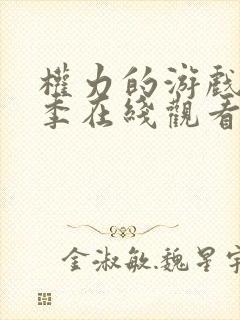 權力的游戲
季在綫觀看
金淑敏.魏星宇